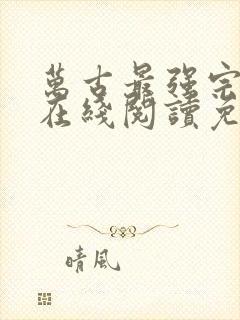 萬古最强宗
在綫閱讀免
晴風